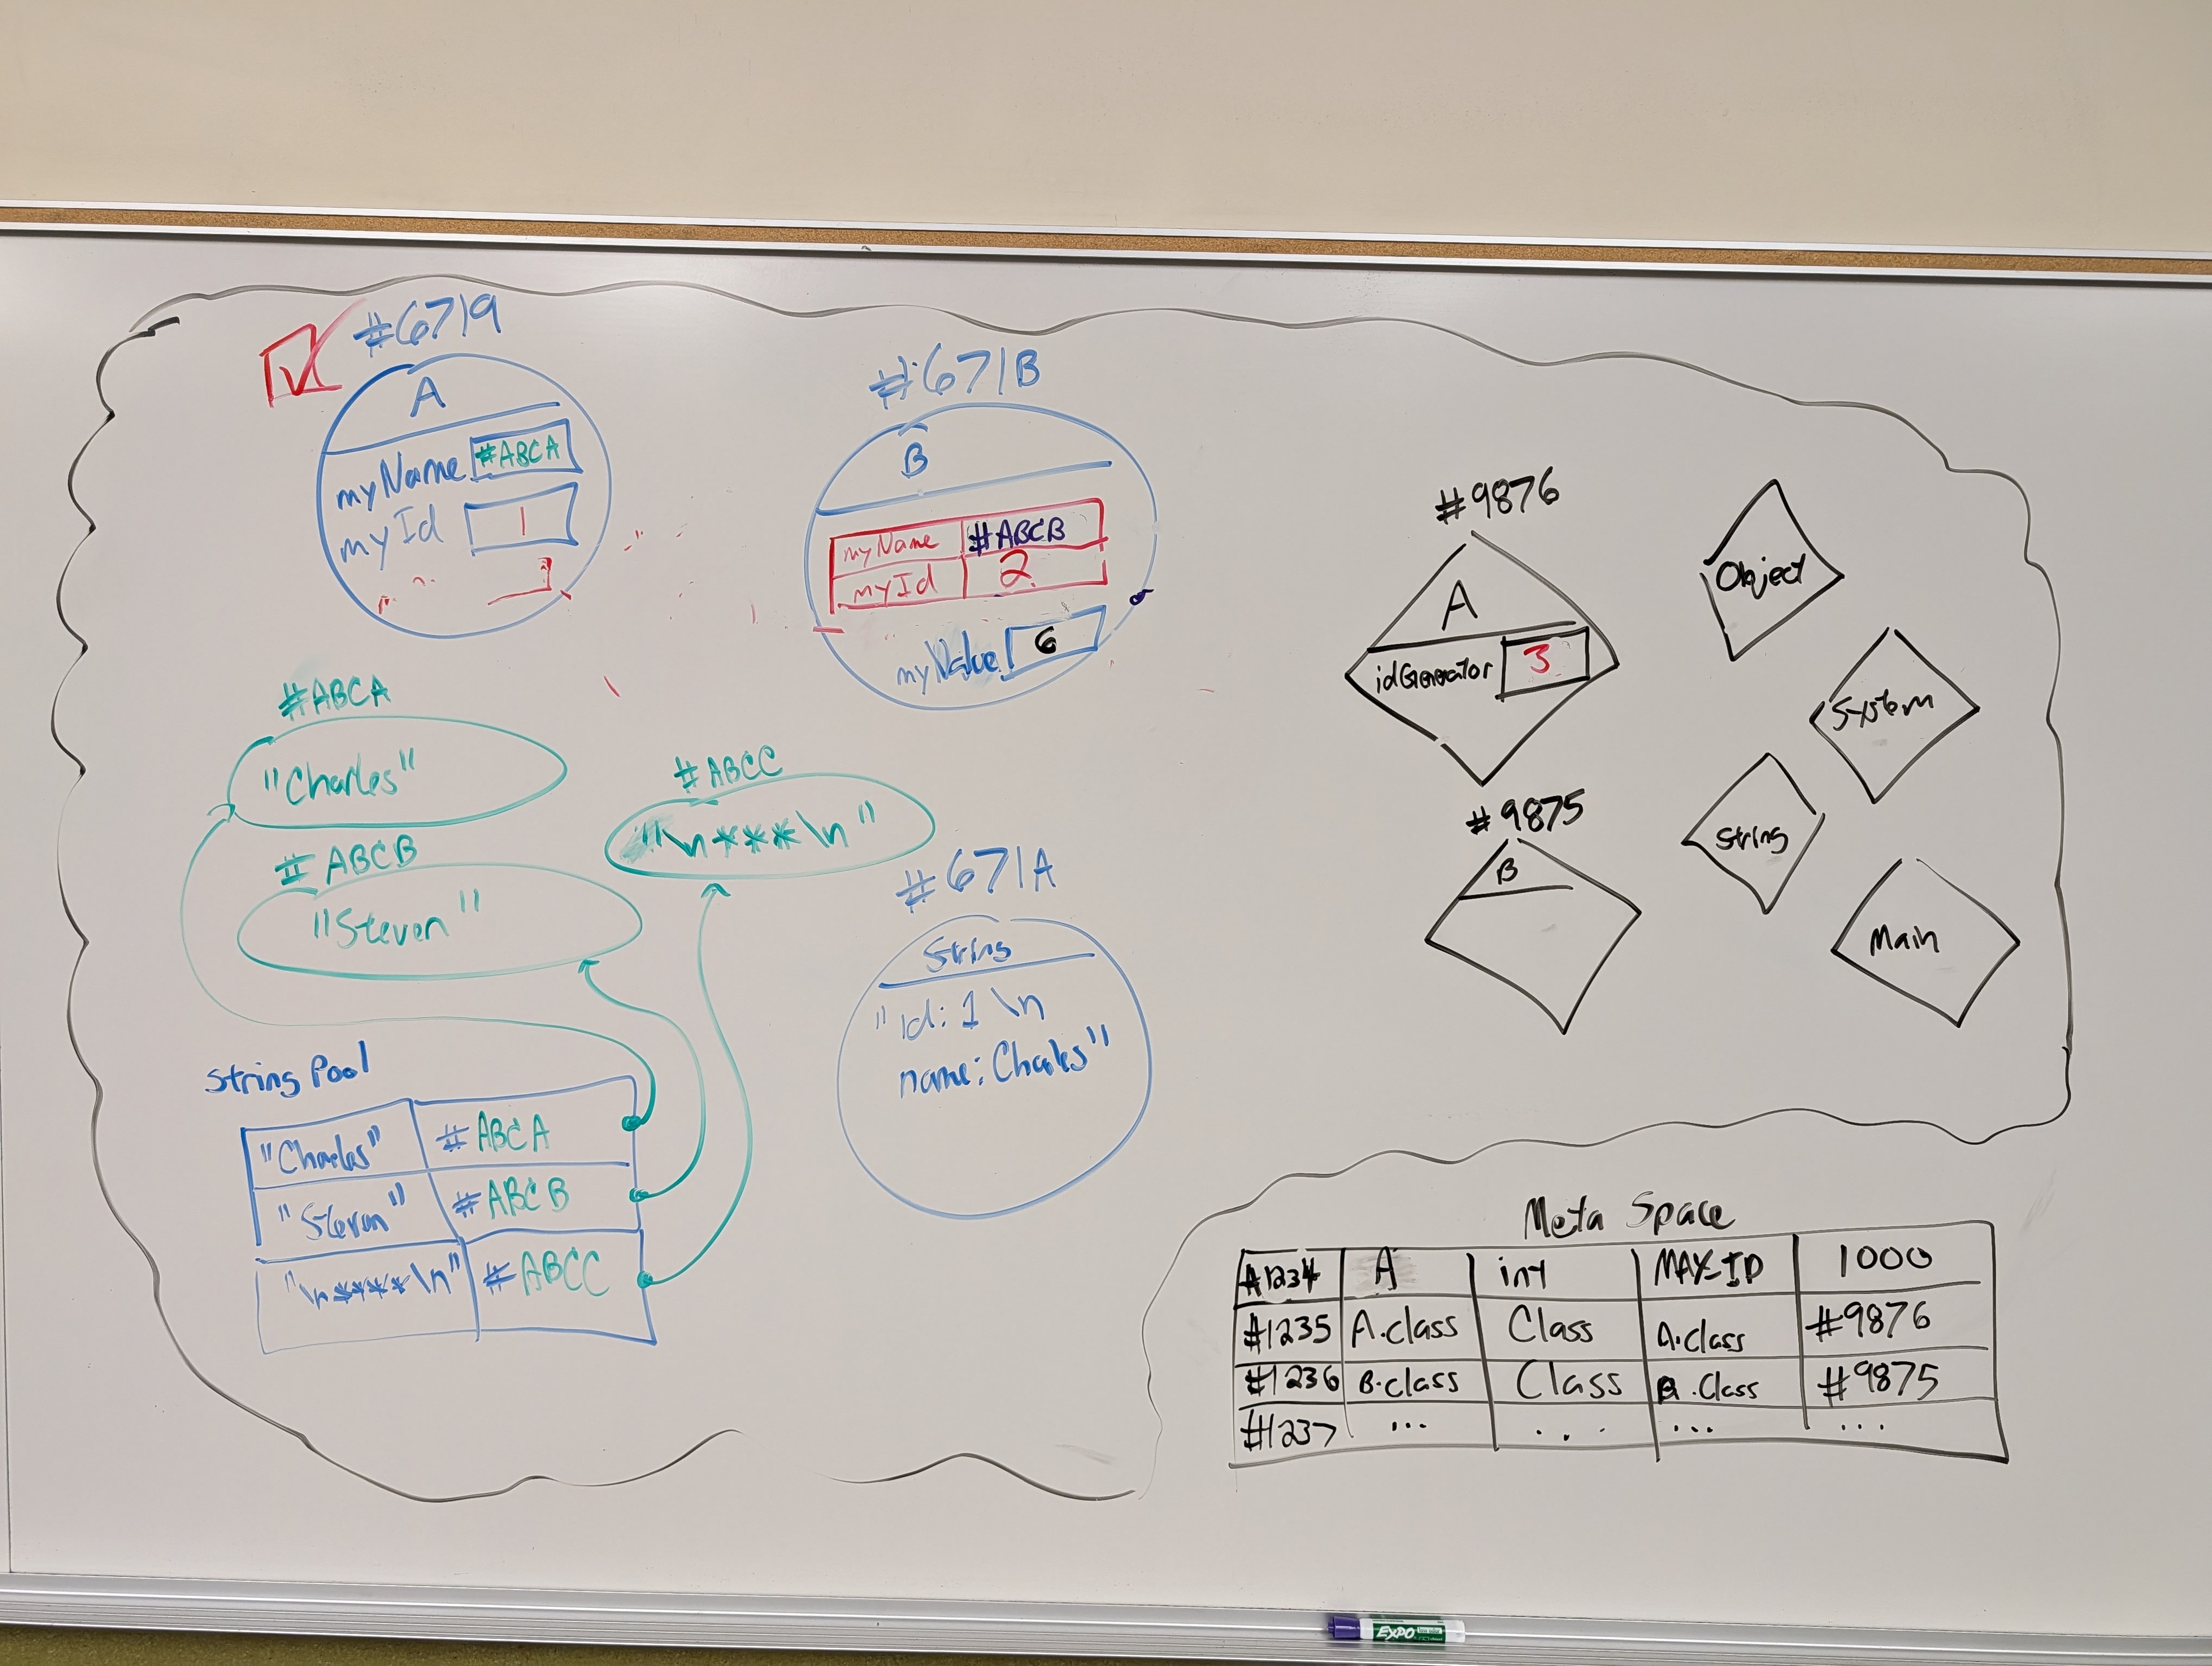 #6719
A
myName #ABCA
myId 1
#671B
B
myName #ABCB
myId 2
myValue 6
#ABCA
"Charles"
#ABCB
"Steven"
#ABCC
"\n***\n"
#671A
String
"id: 1 \n
name: Charles"
String Pool
"Charles" #ABCA
"Steven" #ABCB
"\n****\n" #ABCC
#9876
A
idGenerator 3
#9875
B
Object
System
String
Main
Meta Space
#1234 A int MAX_ID 1000
#1235 A.class Class A.class #9876
#1236 B.class Class B.Class #9875
#1237 ... ... ... ...
EXPO